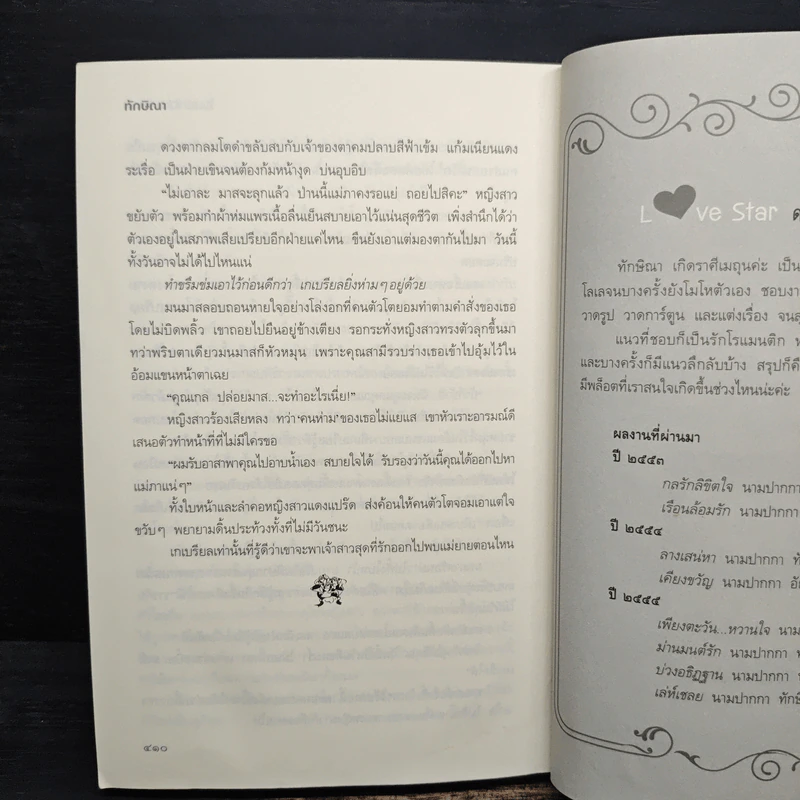 ทักษิณา
ดวงตากลมโตดำขลับสบกับเจ้าของตาคมปลาบสีฟ้าเข้ม แก้มเนียนแดง
ระเรื่อ เป็นฝ่ายเขินจนต้องก้มหน้างุด บ่นอุบอิบ
“ไม่เอาละ มาสจะลุกแล้ว ป่านนี้แม่ภาคงรอแย่ ถอยไปสิคะ” หญิงสาว
ขยับตัว พร้อมกำผ้าห่มแพรเนื้อลื่นเย็นสบายเอาไว้แน่นสุดชีวิต เพิ่งสำนึกได้ว่า
ตัวเองอยู่ในสภาพเสียเปรียบอีกฝ่ายแค่ไหน ขืนยังเอาแต่มองตากันไปมา วันนี้
ทั้งวันอาจไม่ได้ไปไหนแน่
ทำขรึมข่มเอาไว้ก่อนดีกว่า เกเบรียลยิ่งห่ามๆ อยู่ด้วย
มนมาสลอบถอนหายใจอย่างโล่งอกที่คนตัวโตยอมทำตามคำสั่งของเธอ
โดยไม่บิดพลิ้ว เขาถอยไปยืนอยู่ข้างเตียง รอกระทั่งหญิงสาวทรงตัวลุกขึ้นมา
ทว่าพริบตาเดียวมนมาสก็หัวหมุน เพราะคุณสามีรวบร่างเธอเข้าไปอุ้มไว้ใน
อ้อมแขนหน้าตาเฉย
“คุณเกล ปล่อยมาส...จะทำอะไรเนี่ย!”
หญิงสาวร้องเสียหลง ทว่า‘คนห่าม’ของเธอไม่แยแส เขาหัวเราะอารมณ์ดี
เสนอตัวทำหน้าที่ที่ไม่มีใครขอ
“ผมรับอาสาพาคุณไปอาบน้ำเอง สบายใจได้ รับรองว่าวันนี้คุณได้ออกไปหา
แม่ภาแน่ๆ”
ทั้งใบหน้าและลำคอหญิงสาวแดงแปร๊ด ส่งค้อนให้คนตัวโตจอมเอาแต่ใจ
ขวับๆ พยายามดิ้นประท้วงทั้งที่ไม่มีวันชนะ
เกเบรียลเท่านั้นที่รู้ดีว่าเขาจะพาเจ้าสาวสุดที่รักออกไปพบแม่ยายตอนไหน
๔๑๐
L ve Star
ทักษิณา เกิดราศีเมถุนค่ะ เป็น
โลเลจนบางครั้งยังโมโหตัวเอง ชอบงา
วาดรูป วาดการ์ตูน และแต่งเรื่อง จนส
แนวที่ชอบก็เป็นรักโรแมนติก ห
และบางครั้งก็มีแนวลึกลับบ้าง สรุปก็คื
มีพล็อตที่เราสนใจเกิดขึ้นช่วงไหนน่ะค่ะ
ผลงานที่ผ่านมา
ปี ๒๕๕๓
กลรักลิขิตใจ นามปากกา
เรือนล้อมรัก นามปากกา
ปี ๒๕๕๔
ลางเสน่หา นามปากกา ทั
เคียงขวัญ นามปากกา อั
ปี ๒๕๕๕
เพียงตะวัน...หวานใจ นาม
ม่านมนต์รัก นามปากกา
บ่วงอธิฏฐาน นามปากกา
เล่ห์เชลย นามปากกา ทักษิ